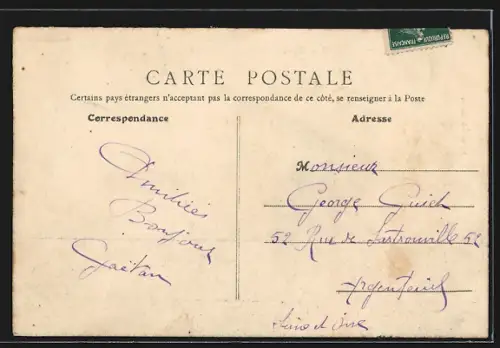 REPUBLIQUE FRANÇAISE
CARTE POSTALE
Certains pays étrangers n'acceptant pas la correspondance de ce côté, se renseigner à la Poste
Correspondance
Amitiés
Bonjour
Gaëtan
Adresse
Monsieur
George
52 Rue de Sartrouville 52
Argenteuil
Seine et Oise